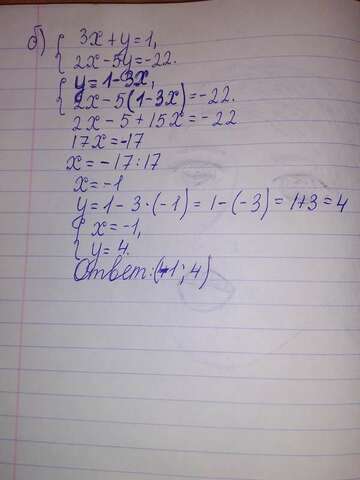 б) { 3x + y = 1,
{ 2x - 5y = -22.
{ y = 1 - 3x,
{ 2x - 5(1 - 3x) = -22.
2x - 5 + 15x = -22
17x = -17
x = -17 : 17
x = -1
y = 1 - 3 · (-1) = 1 - (-3) = 1 + 3 = 4
{ x = -1,
{ y = 4.
Ответ: (-1; 4)